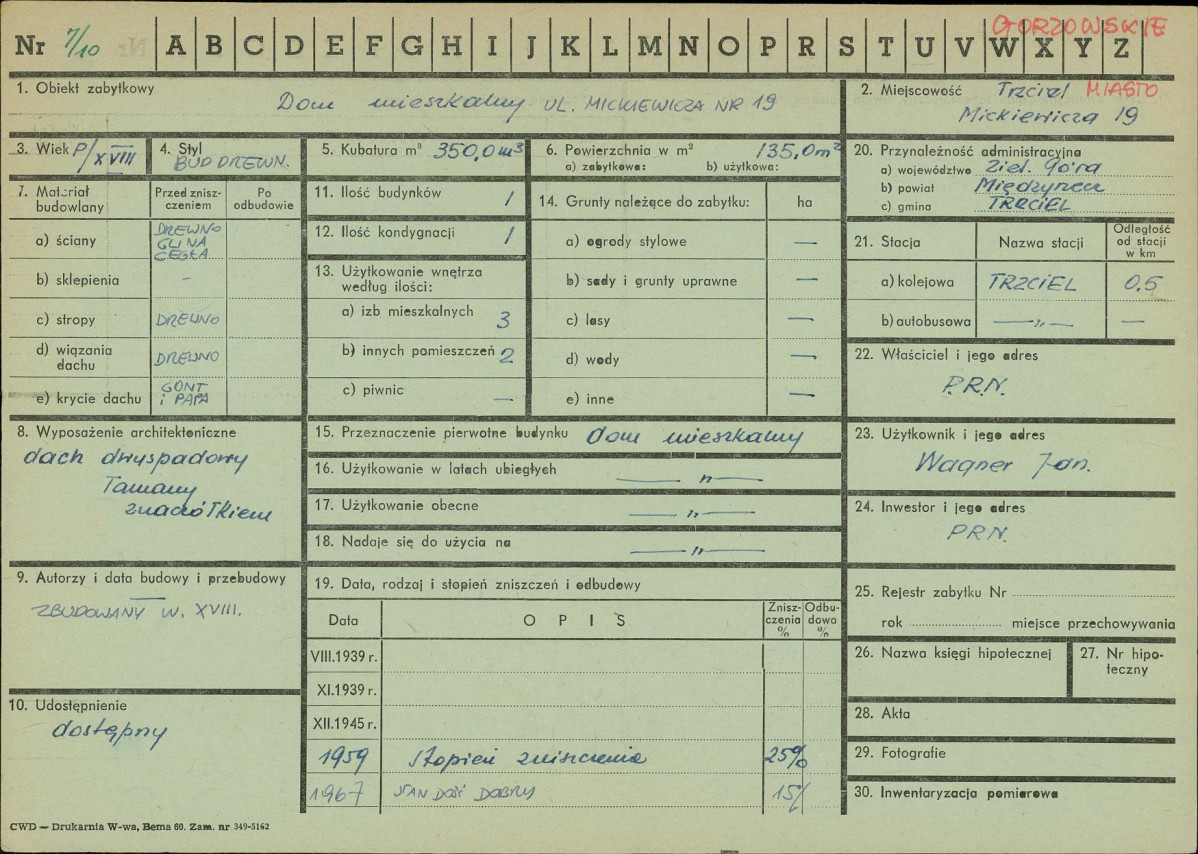 GORZOWSKIE
Nr 7/10 A B C D E F G H I J K L M N O P R S T U V W X Y Z
1. Obiekt zabytkowy
Dom mieszkalny UL. MICKIEWICZA NR 19
2. Miejscowość Trzciel MIASTO
Mickiewicza 19
3. Wiek P/XVIII
4. Styl
BUD DREWN.
5. Kubatura m³ 350,0 m³
6. Powierzchnia w m² 135,0 m²
a) zabytkowa: b) użytkowa:
7. Materiał budowlany
Przed znisz-
czeniem
Po
odbudowie
a) ściany DREWNO
GLINA
CEGŁA
b) sklepienia –
c) stropy DREWNO
d) wiązania
dachu DREWNO
e) krycie dachu GONT
i PAPA
8. Wyposażenie architektoniczne
dach dwuspadowy
Tamany
9. Autorzy i data budowy i przebudowy
ZBUDOWANY W. XVIII.
10. Udostępnienie
dostępny
11. Ilość budynków 1
12. Ilość kondygnacji 1
13. Użytkowanie wnętrza
według ilości:
a) izb mieszkalnych 3
b) innych pomieszczeń 2
c) piwnic —
14. Grunty należące do zabytku: ha
a) ogrody stylowe —
b) sady i grunty uprawne —
c) lasy —
d) wody —
e) inne —
15. Przeznaczenie pierwotne budynku dom mieszkalny
16. Użytkowanie w latach ubiegłych — „ —
17. Użytkowanie obecne — „ —
18. Nadaje się do użycia na — „ —
19. Data, rodzaj i stopień zniszczeń i odbudowy
Data OPIS Znisz-
czenia
% Odbu-
dowa
%
VIII.1939 r.
XI.1939 r.
XII.1945 r.
1959 Stopień zniszczenia 25%
1967 STAN DOŚĆ DOBRY 15/
20. Przynależność administracyjna
a) województwo Ziel. Góra
b) powiat Międzyrzecz
c) gmina TRZCIEL
21. Stacja Nazwa stacji Odległość
od stacji
w km
a) kolejowa TRZCIEL 0,5
b) autobusowa — „ — —
22. Właściciel i jego adres
P.R.N.
23. Użytkownik i jego adres
Wagner Jan.
24. Inwestor i jego adres
PRN.
25. Rejestr zabytku Nr
rok miejsce przechowywania
26. Nazwa księgi hipotecznej
27. Nr hipo-
teczny
28. Akta
29. Fotografie
30. Inwentaryzacja pomiarowa
CWD — Drukarnia W-wa, Bema 60. Zam. nr 349-5162